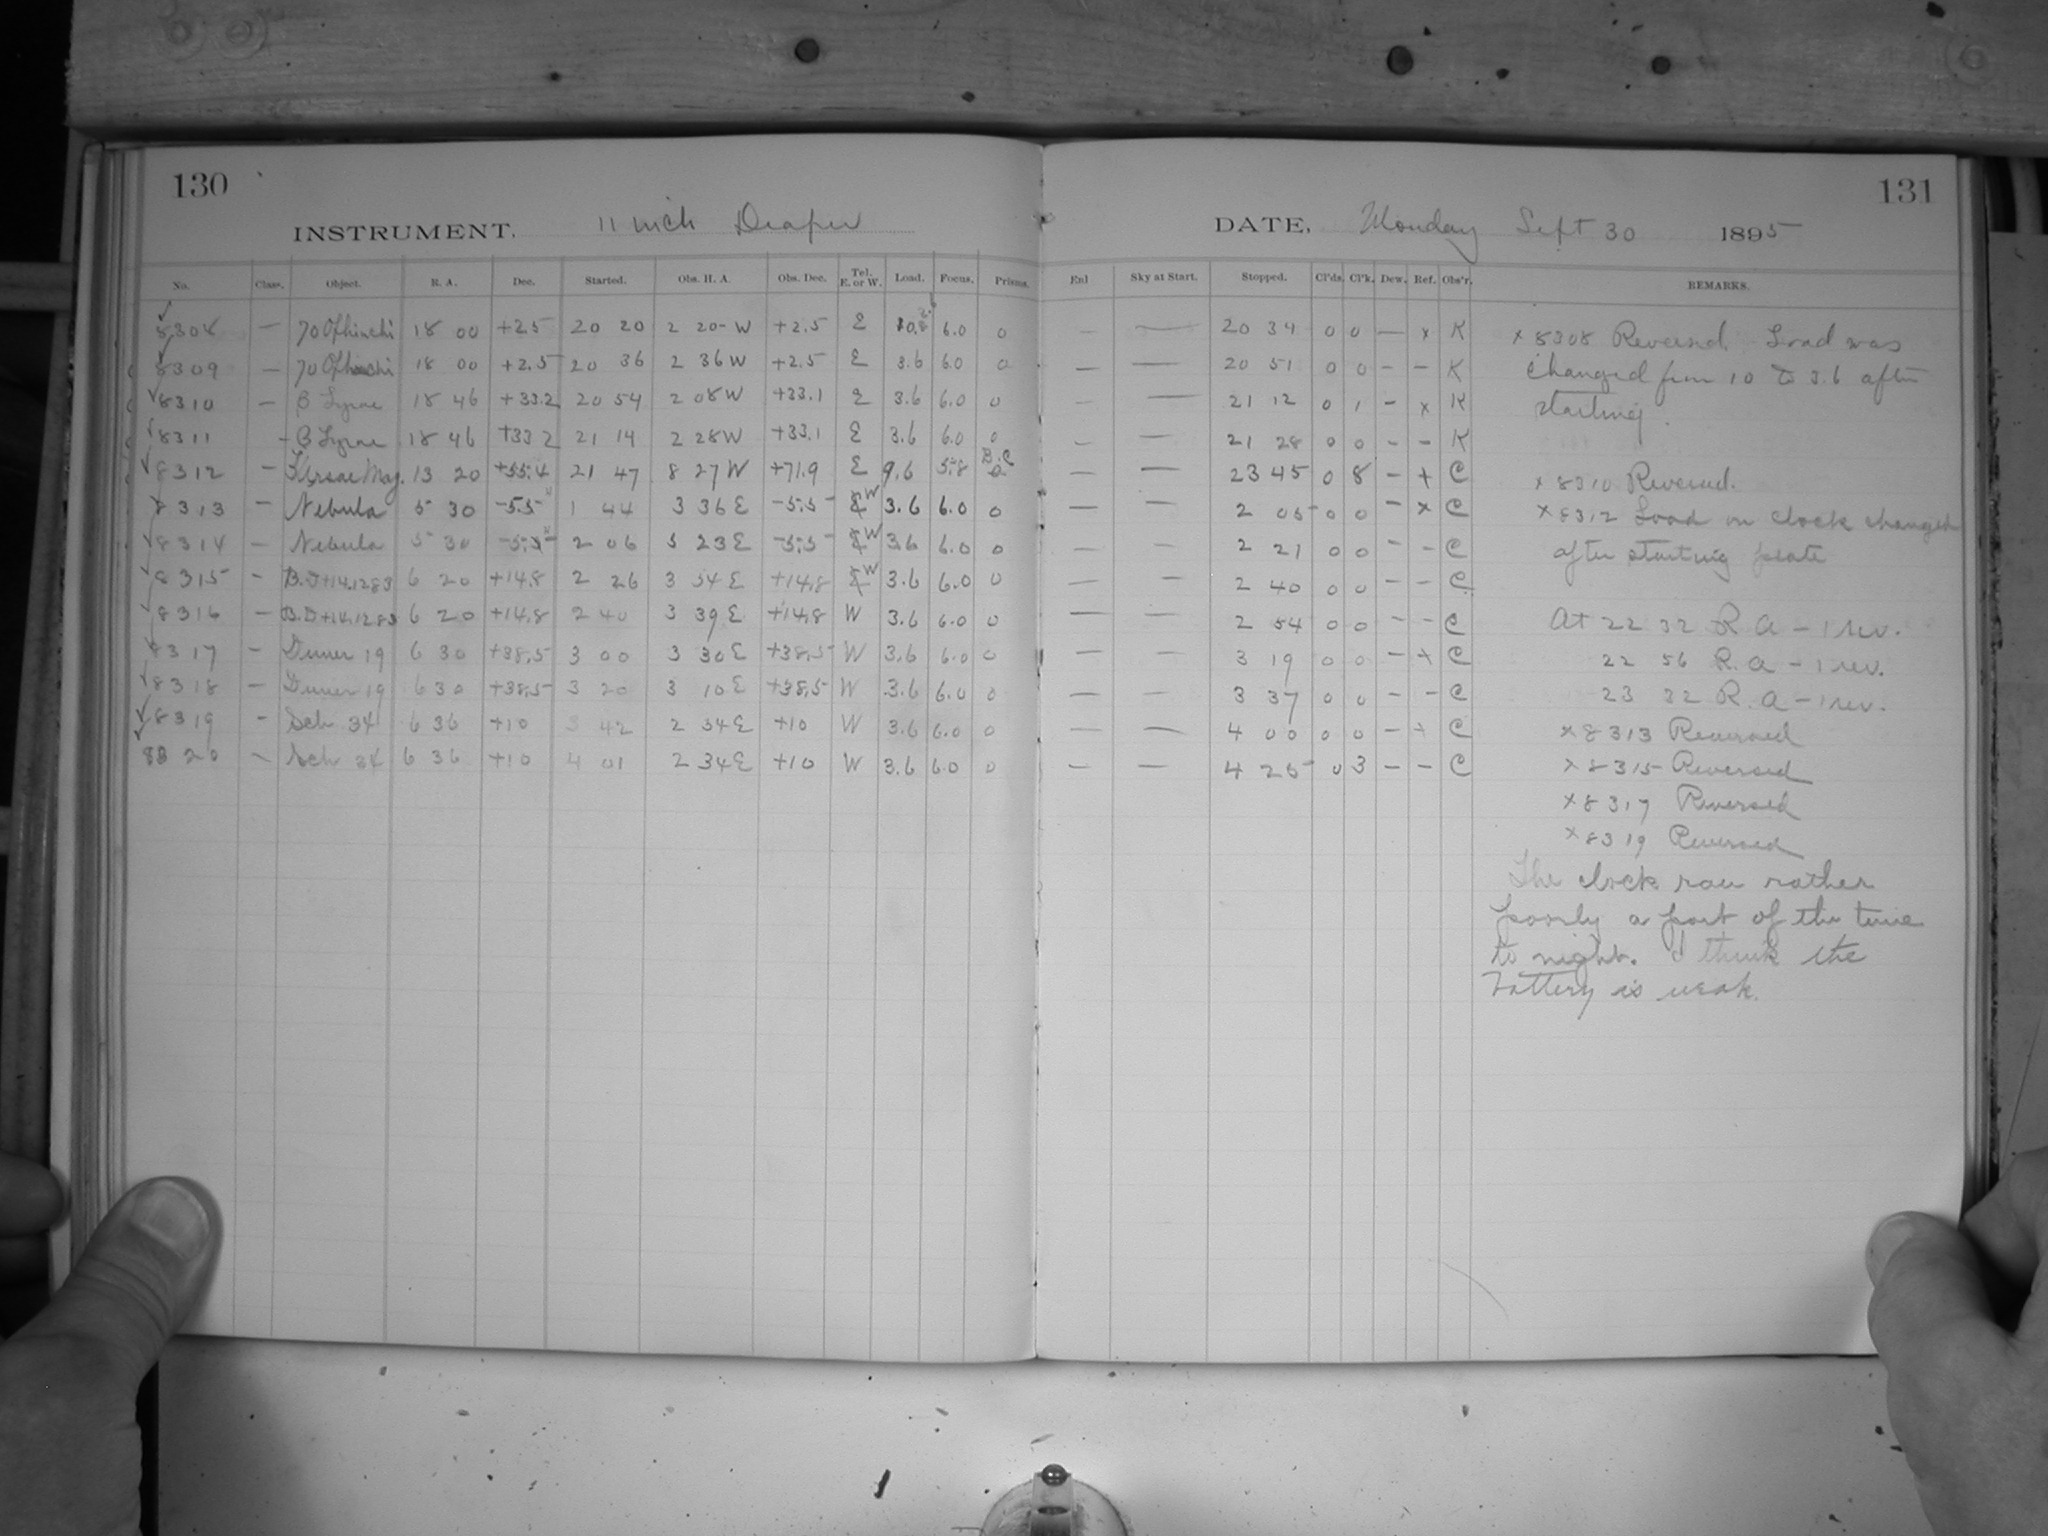 130
INSTRUMENT. 11 inch Draper
No. Class. Object. R. A. Dec. Started. Obs. H. A. Obs. Dec. Tel. E. or W. Load. Focus. Prisms.
8308 — 70 Ophiuchi 18 00 +2.5 20 20 2 20 W +2.5 E 6.0 0
8309 — 70 Ophiuchi 18 00 +2.5 20 36 2 36 W +2.5 E 3.6 6.0 0
8310 — β Lyrae 18 46 +33.2 20 54 2 08 W +33.1 E 3.6 6.0 0
8311 — β Lyrae 18 46 +33 2 21 14 2 28 W +33.1 E 3.6 6.0 0
8312 — Ursae Maj. 13 20 +55.4 21 47 8 27 W +71.9 E 9.6 5.8 B.C
8313 — Nebula 5 30 -5.5 1 44 3 36 E -5.5 W 3.6 6.0 0
8314 — Nebula 5 30 -5.5 2 06 3 23 E -5.5 W 3.6 6.0 0
8315 — B.D+14.1283 6 20 +14.8 2 26 3 54 E +14.8 W 3.6 6.0 0
8316 — B.D+14.1283 6 20 +14.8 2 40 3 39 E +14.8 W 3.6 6.0 0
8317 — Duner 19 6 30 +38.5 3 00 3 30 E +38.5 W 3.6 6.0 0
8318 — Duner 19 6 30 +38.5 3 20 3 10 E +38.5 W 3.6 6.0 0
8319 — Sch 34 6 36 +10 3 42 2 54 E +10 W 3.6 6.0 0
8320 — Sch 34 6 36 +10 4 01 2 34 E +10 W 3.6 6.0 0
131
DATE, Monday Sept 30 1895
Enl Sky at Start. Stopped. Cl'ds. Cl'k. Dew. Ref. Obs'r. REMARKS.
— — 20 34 0 0 — x K
— — 20 51 0 0 – – K
— — 21 12 0 1 – x K
— — 21 28 0 0 – – K
— — 23 45 0 8 – + C
— — 2 05 0 0 – x C
— — 2 21 0 0 – – C
— — 2 40 0 0 – – C
— — 2 54 0 0 – – C
— — 3 19 0 0 – + C
— — 3 37 0 0 – – C
— — 4 00 0 0 – + C
— — 4 25 0 3 – – C
x 8308 Reversed. Load was
changed from 10 to 3.6 after
starting.
x 8310 Reversed.
x 8312 Load on clock changed
after starting plate
At 22 32 R A – 1 rev.
22 56 R.A – 1 rev.
23 32 R.A – 1 rev.
x 8313 Reversed
x 8315 Reversed
x 8317 Reversed
x 8319 Reversed
The clock ran rather
poorly a part of the time
to night. I think the
battery is weak.